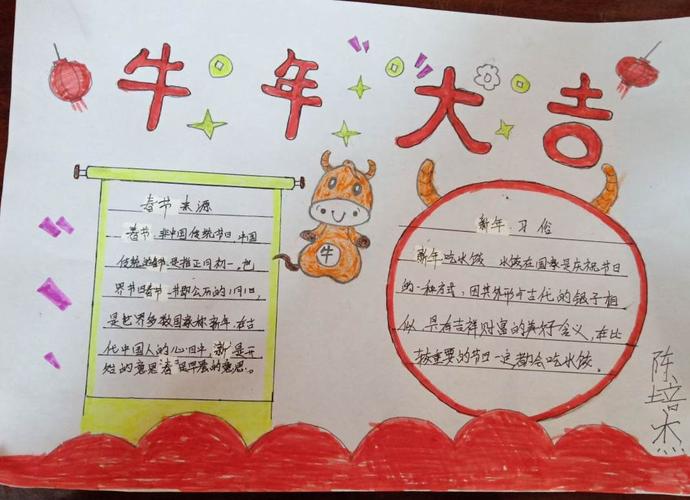 牛年大吉
春节来源
春节,非中国传统节日,中国
传统春节是指正月初一。世
界节日春节一书即公历的1月1日,
是世界多数国家称新年,在古
代中国人的心日中,新是开
姓的意思春呈早晨的意思。
新年习俗
新年吃水饺 水饺在国家是庆祝节日
的一种方式,因其外形与古代的银子相
似,具有吉祥财富的美好含义,在比
较重要的节日一定都会吃水饺.
牛
陈培杰